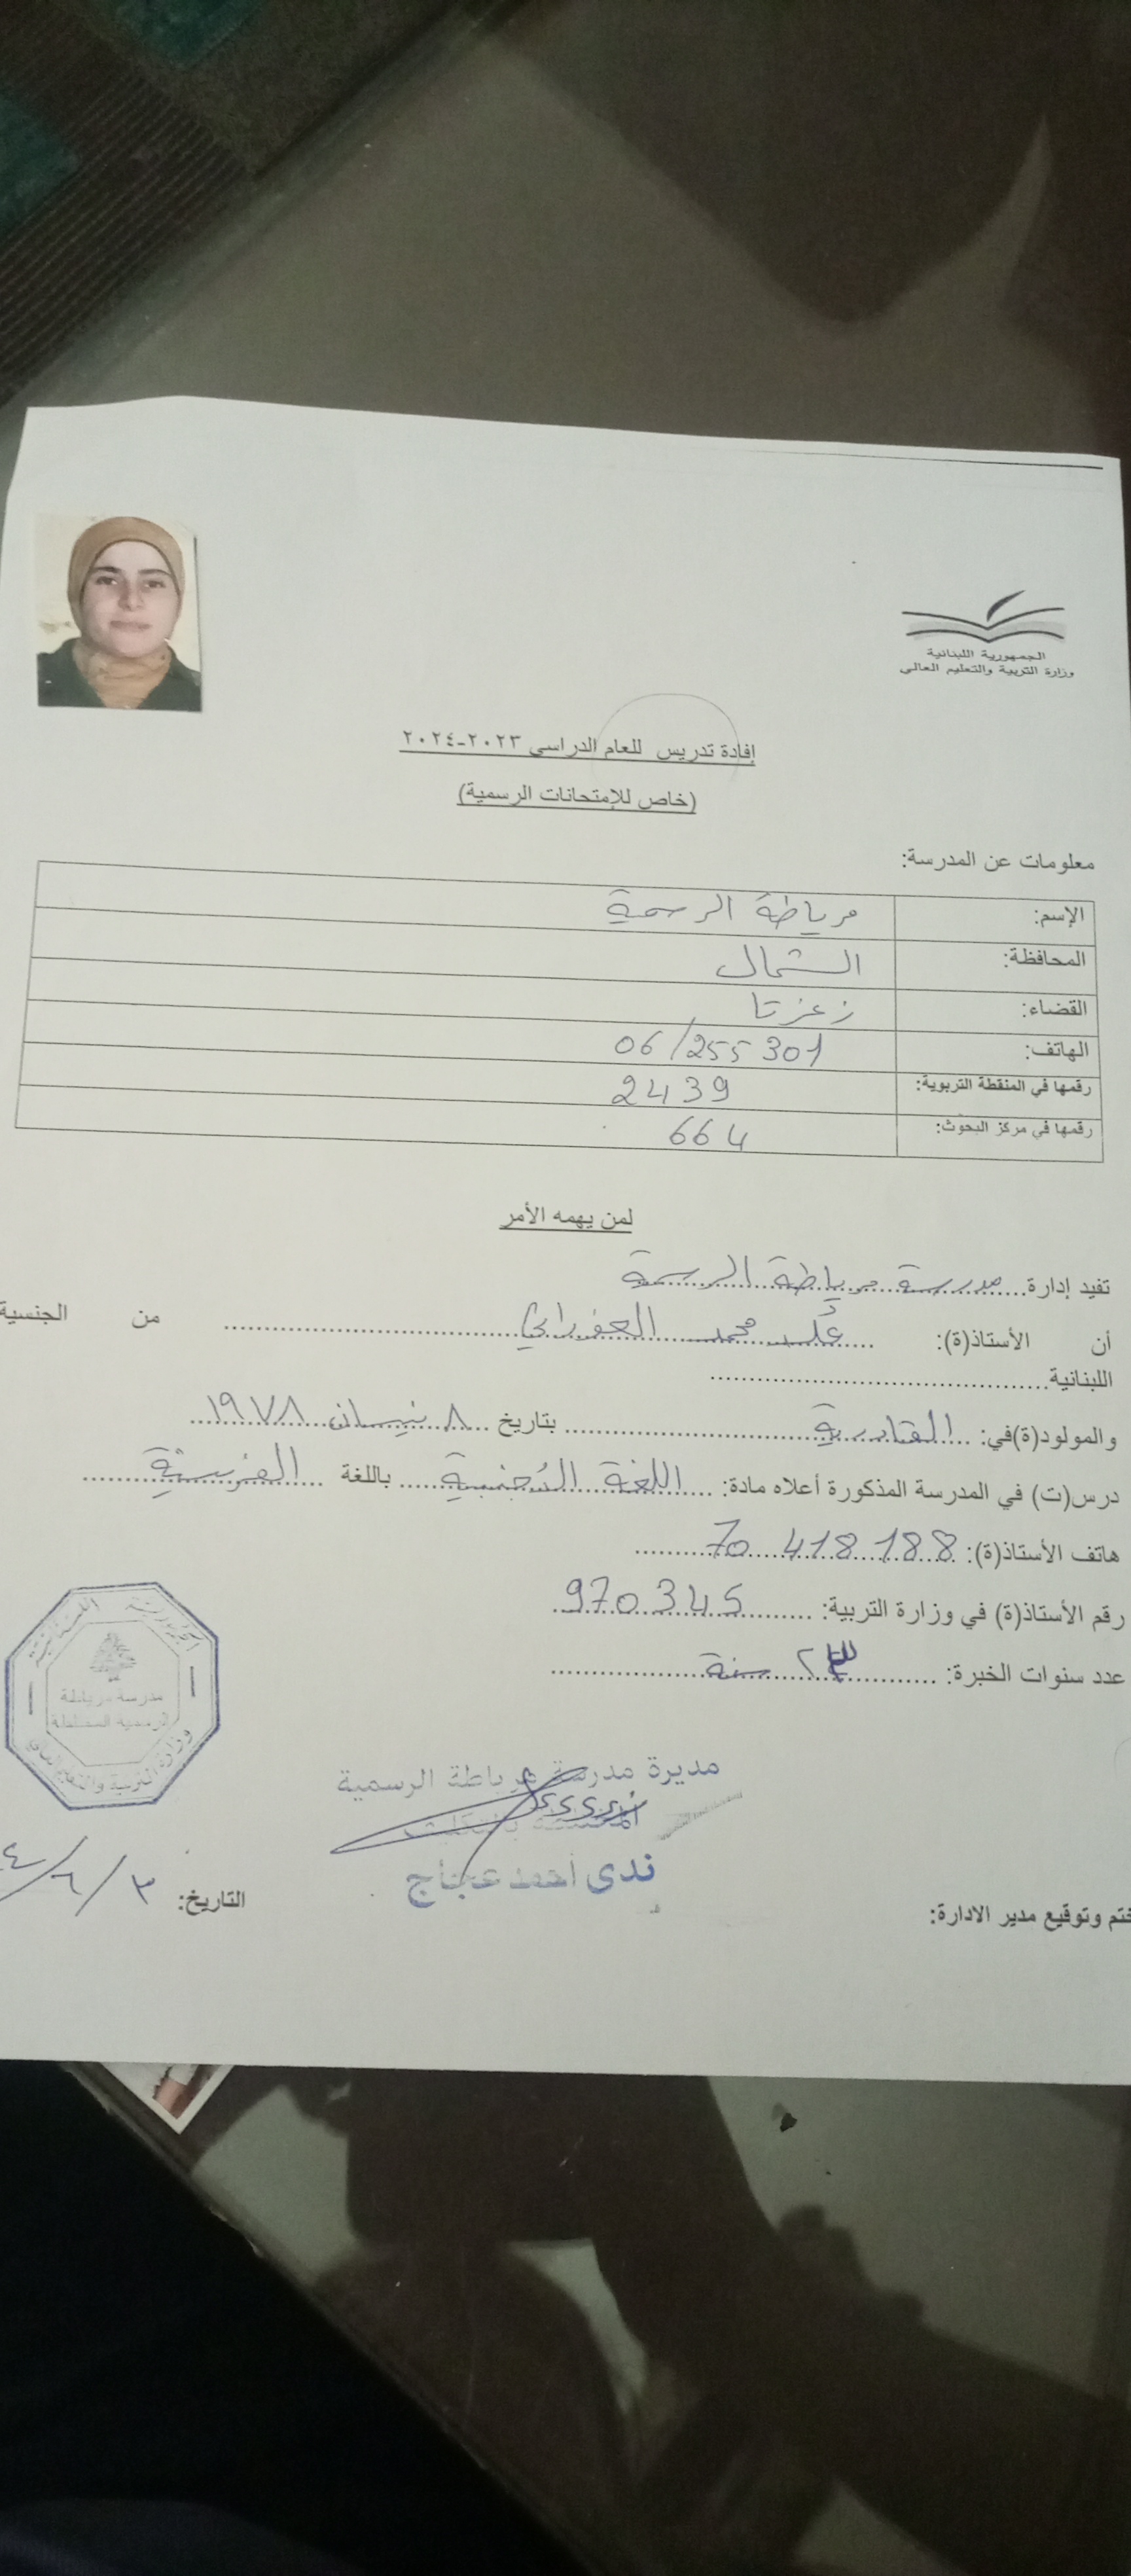 الجمهورية اللبنانية
وزارة التربية والتعليم العالي
إفادة تدريس للعام الدراسي ٢٠٢٣-٢٠٢٤
(خاص للإمتحانات الرسمية)
معلومات عن المدرسة:
الإسم: مرياطة الرسمية
المحافظة: الشمال
القضاء: زغرتا
الهاتف: 06/255 301
رقمها في المنقطة التربوية: 2439
رقمها في مركز البحوث: 664
لمن يهمه الأمر
تفيد إدارة مدرسة مرياطة الرسمية
أن الأستاذ(ة): محمد من الجنسية
اللبنانية
والمولود(ة)في: القادرية بتاريخ ٨ نيسان ١٩٧٨
درس(ت) في المدرسة المذكورة أعلاه مادة: اللغة الأجنبية باللغة الفرنسية
هاتف الأستاذ(ة): 70 418 188
رقم الأستاذ(ة) في وزارة التربية: 970345
عدد سنوات الخبرة: سنة
الجمهورية اللبنانية
مدرسة مرياطة
الرسمية المختلطة
وزارة التربية والتعليم العالي
مديرة مدرسة مرياطة الرسمية
ندى احمد عجاج
التاريخ: ٣/٦/
ختم وتوقيع مدير الادارة: